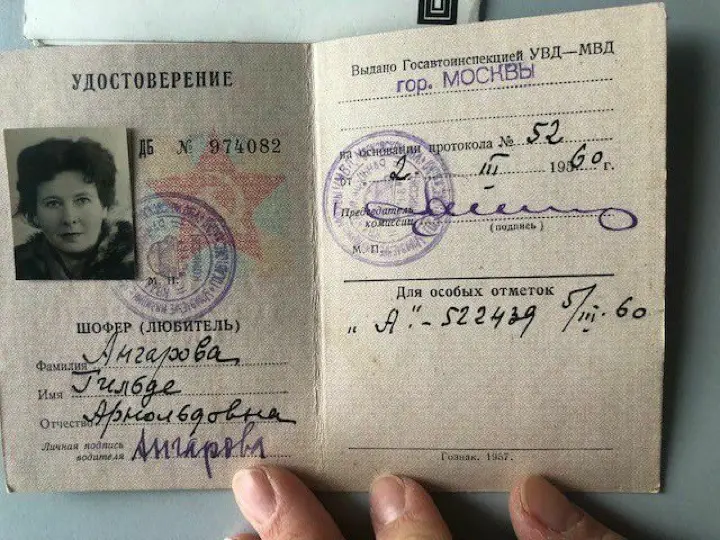 УДОСТОВЕРЕНИЕ
ДБ № 974082
М. П.
ШОФЕР (ЛЮБИТЕЛЬ)
Фамилия Ангарова
Имя Гильде
Отчество Арнольдовна
Личная подпись
водителя Ангарова
Выдано Госавтоинспекцией УВД—МВД
гор. МОСКВЫ
на основании протокола № 52
от 2. III 1960 г.
Председатель
комиссии
(подпись)
М. П.
Для особых отметок
„А."- 522439 5/III-60
Гознак. 1957.